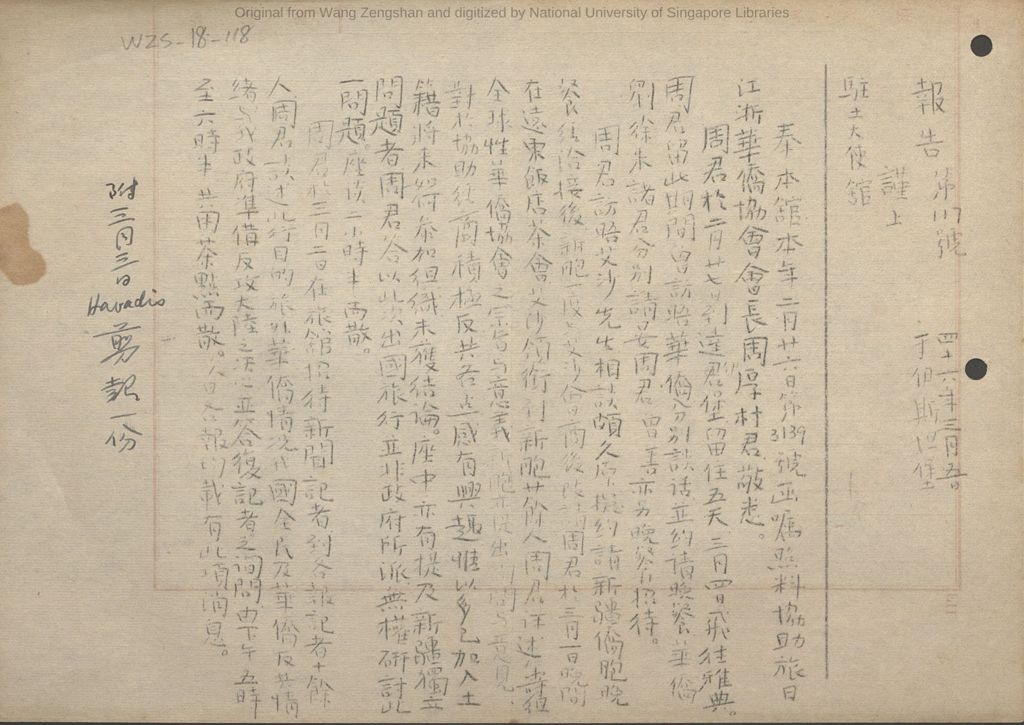 Original from Wang Zengshan and digitized by National University of Singapore Libraries
WZS-18-118
報告 第117號 四十六年三月五日
謹上 于伊斯坦堡
駐土大使舘
奉本舘本年二月廿六日第3139號函囑照料協助旅日
江浙華僑協會會長周厚村君敬悉。
周君於二月廿七日到達君堡留住五天三月四日飛往雅典。
周君留此期間曾訪晤華僑分別談話並約請晚餐並僑
劉徐朱諸君分別請宴周君曾善亦另晚餐招待。
周君訪晤艾沙先生相談頗久原擬約請新疆僑胞晚
餐 後 艾沙 商後改請周君於三月一日晚間
在遠東飯店茶會艾沙領銜到新胞廿餘人周君詳述籌組
全球性華僑協會之宗旨與意義 新胞亦提出 問與意見，
對於協助 商積極反共各点感有興趣惟以多已加入土
籍將來 參加組織未獲結論。座中亦有提及新疆獨立
問題者周君答以此次出國旅行並非政府所派無權研討此
一問題。座談二小時半而散。
周君於三月二日在旅舘招待新聞記者到各報記者十餘
人周君談述此行目的旅外華僑情况我國全民及華僑反共情
緒與我政府準備反攻大陸之决心並答復記者之詢問由下午五時
至六時半共用茶點而散。 各報均載有此項消息。
附三月三日Havadis剪報一份